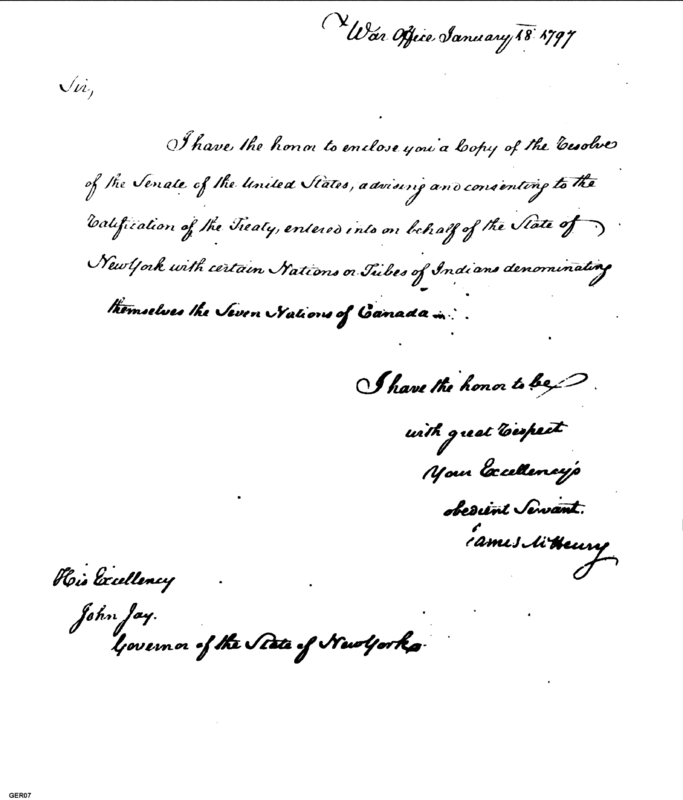 War Office January 18 1797
Sir,
I have the honor to enclose you a Copy of the Resolve
of the Senate of the United States, advising and consenting to the
Ratification of the Treaty, entered into on behalf of the State of
New York with certain Nations or Tribes of Indians denominating
themselves the Seven Nations of Canada
I have the honor to be
with great Respect
Your Excellency's
obedient Servant.
James McHenry
His Excellency
John Jay.
Governor of the State of New York
GER07